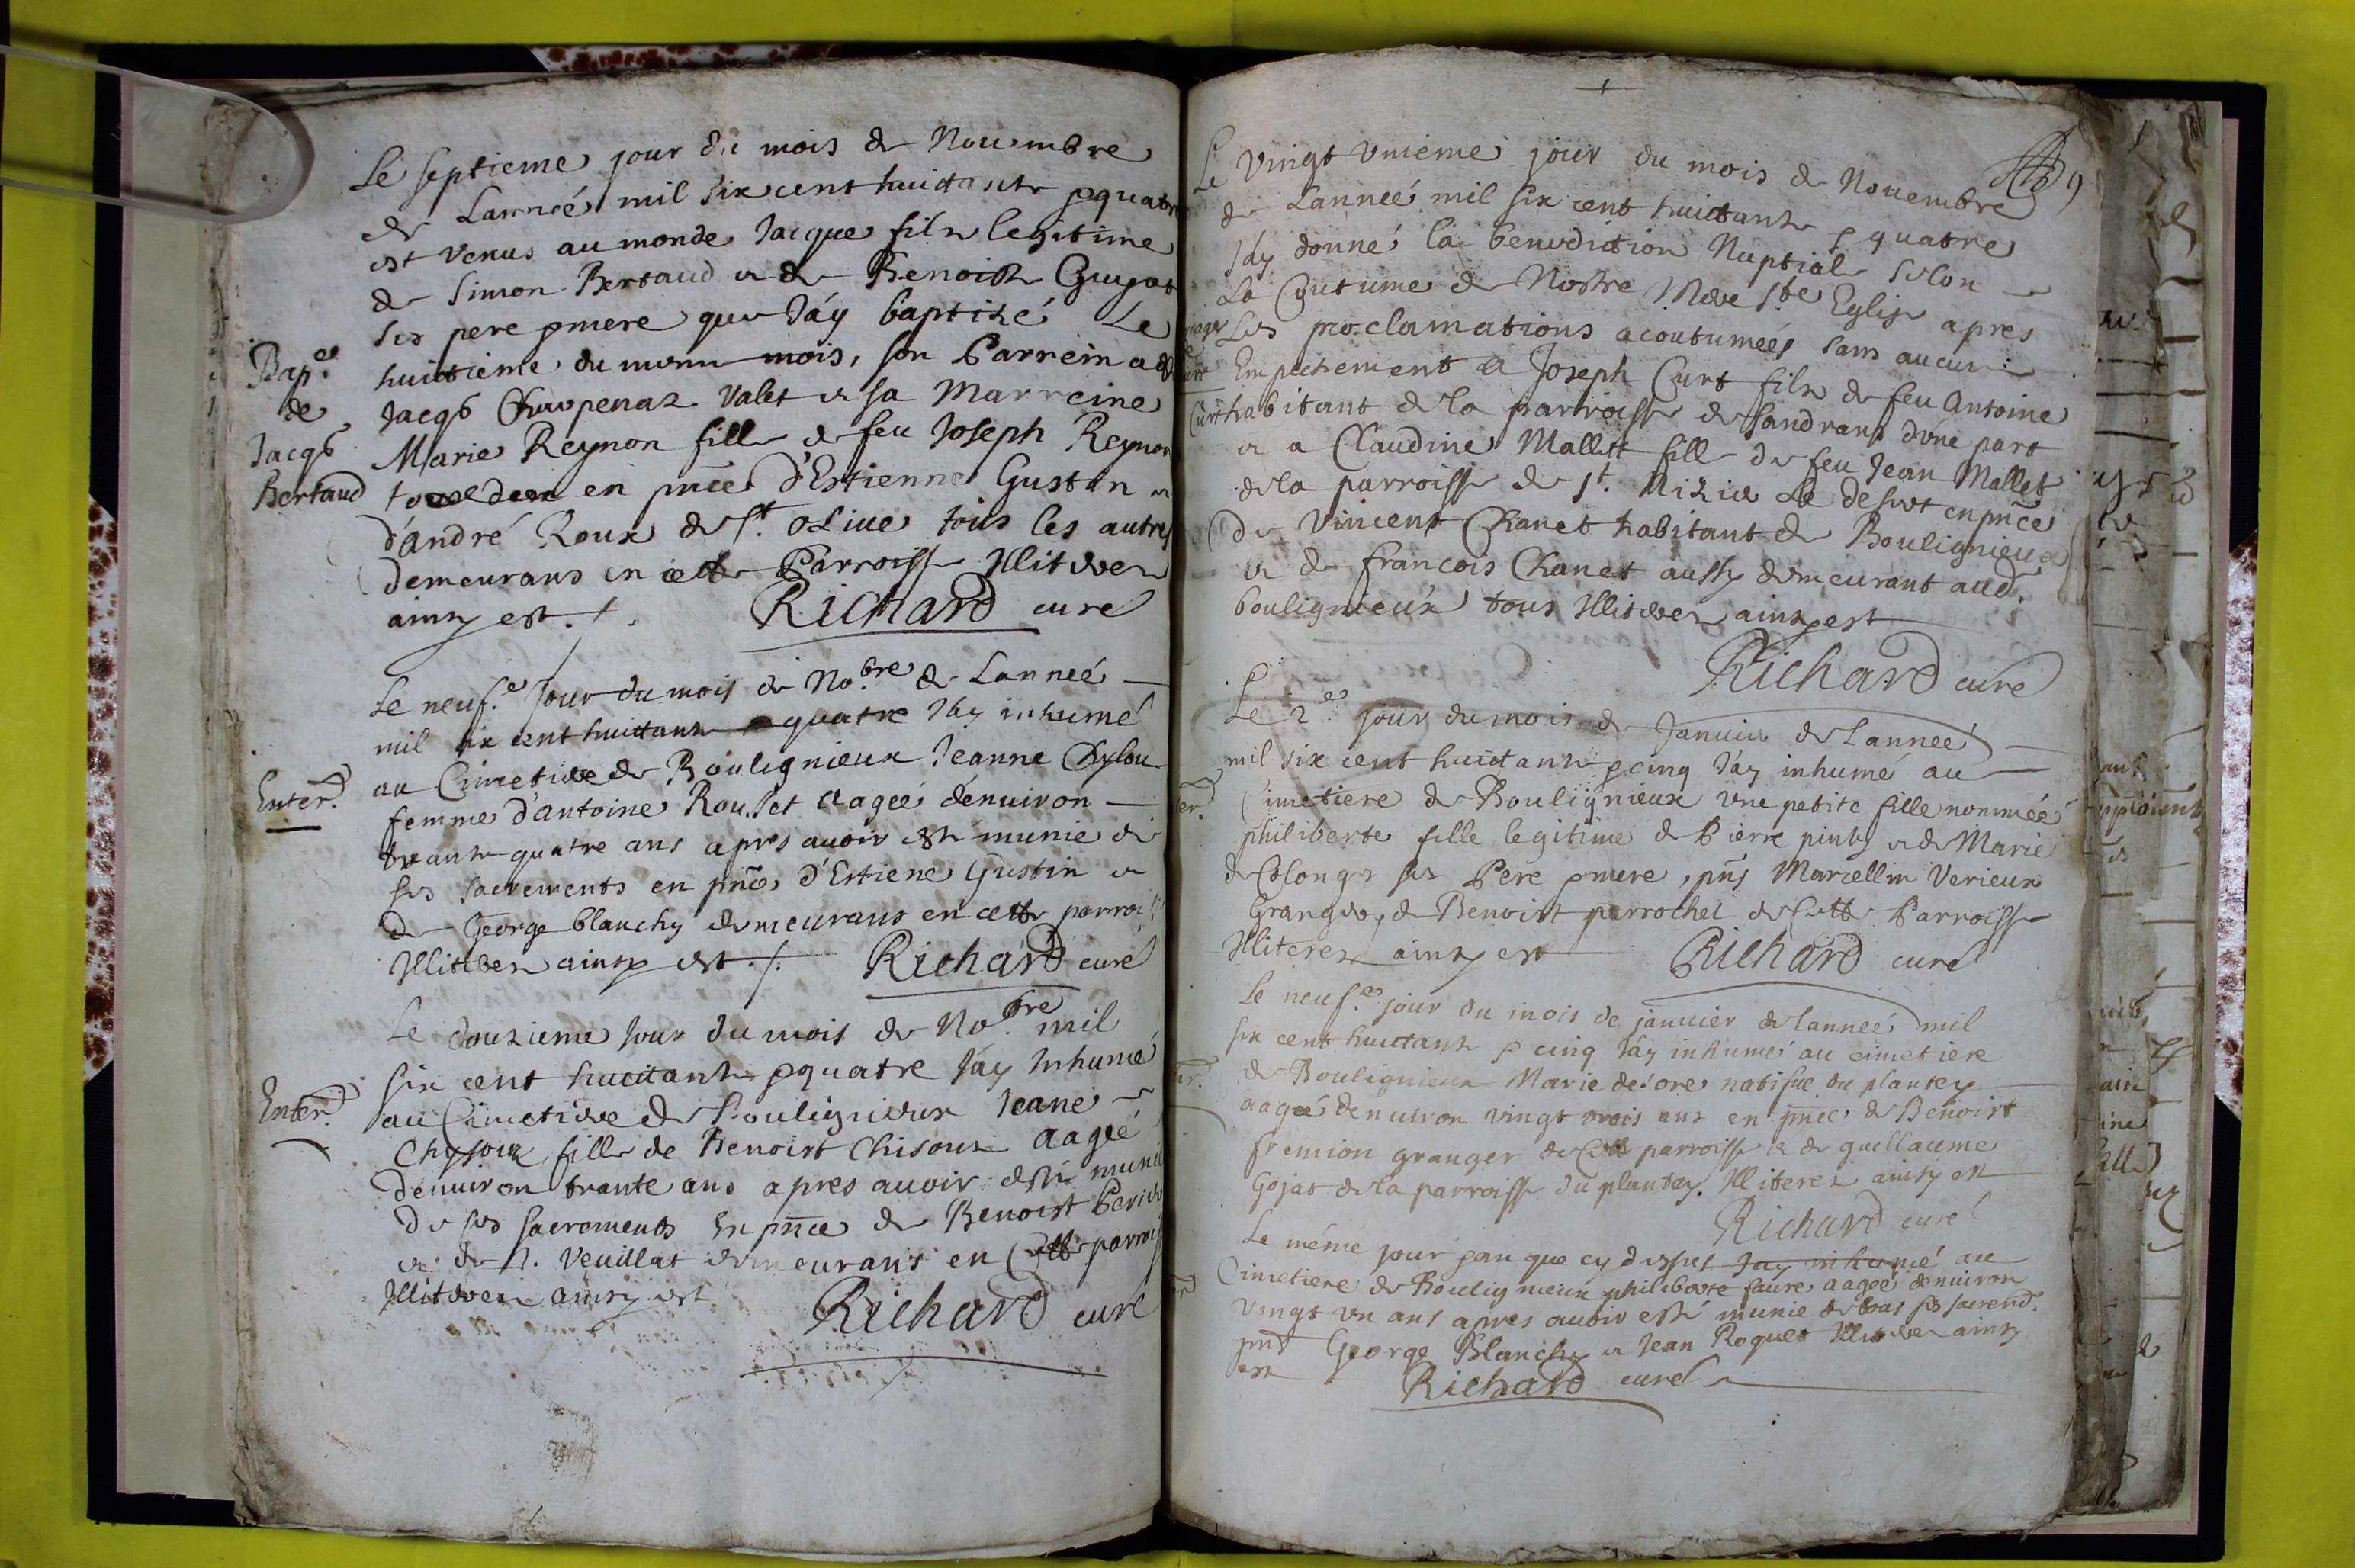 Le septieme jour du mois de Nouembre
de Lannée mil six cent huictante & quatre
est venus au monde Jacque fils legitime
de Simon Bertaud et de Benoiste Guyot
ses pere & mere que J'ay baptizé Le
huictieme du mesme mois, son Parrein a esté
Jacqs Charpenas Valet et sa Marreine
Marie Reynon fille de feu Joseph Reynon
en pnce d'Estienne Gustin et
d'andré Roux de St. Oliue tous les autres
demeurans en cette Parroisse Illiteres
ainsy est. Richard curé
Bape.
de
Jacqs
Bertaud
Le neufe. Jour du mois de Nobre. de Lannée
mil six cent huictante quatre J'ay inhumé
au Cimetiere de Boulignieux Jeanne
femme d'antoine Rousset aagée d'enuiron
trante quatre ans apres auoir esté munie de
ses sacrements en pnce d'Estiene Gustin et
de George blanchy demeurans en cette parroisse
Illiteres ainsy est. Richard curé
Enterd.
Le douzieme Jour du mois de Nobre. mil
six cent huictante & quatre J'ay Inhumé
au Cimetiere de Boulignieux Jeane
Chysoux fille de Benoist Chisoux aagée
d'enuiron trante ans apres auoir esté munie
de ses sacrements En pnce de Benoist
et de Veuillat demeurans en Cette parroisse
Illiteres ainsy est
Richard curé
Enterd.
Le vingt vnieme jour du mois de Nouembre
de Lannée mil six cent huictante & quatre
J'ay donné la benediction Nuptiale selon
La Coutume de Nostre Mere Ste Eglise apres
Les proclamations acoutumées sans aucun
Empechement a Joseph Curt fils de feu Antoine
habitant de la parroisse de Sandrans d'une part
et a Claudine Mallet fille de feu Jean Mallet
de la parroisse de St. Nizie Le desert en pnce
de Vincent Chanet habitant de Boulignieux
et de francois Chanet aussy demeurant aud.
boulignieux tous Illiteres ainsy est
Richard curé
Curt
Le 2e. jour du mois de Januier de Lannée
mil six cent huictante & cinq J'ay inhumé au
Cimetiere de Boulignieux vne petite fille nommée
philiberte fille legitime de Pierre et de Marie
de Colonges ses Pere & mere, pns Marcellin Verieux
Granger, & Benoist perrochet de Cette Parroisse
Illiteres ainsy est Richard curé
Le neufe. jour du mois de januier de lannée mil
six cent huictante & cinq J'ay inhumé au cimetiere
de Boulignieux Marie natifue du plantey
aagée d'enuiron vingt trois ans en pnce de Benoist
fremion granger de Cette parroisse et de guellaume
Gojat de la parroisse du plantey. Illiteres ainsy est
Richard curé
Le méme jour & an que cy dessus J'ay inhumé au
Cimetiere de Boulignieux philiberte faure aagée d'enuiron
vingt vn ans apres auoir esté munie de tous ses sacrend.
pnt George Blanchy et Jean Roquet Illiteres ainsy
est Richard curé